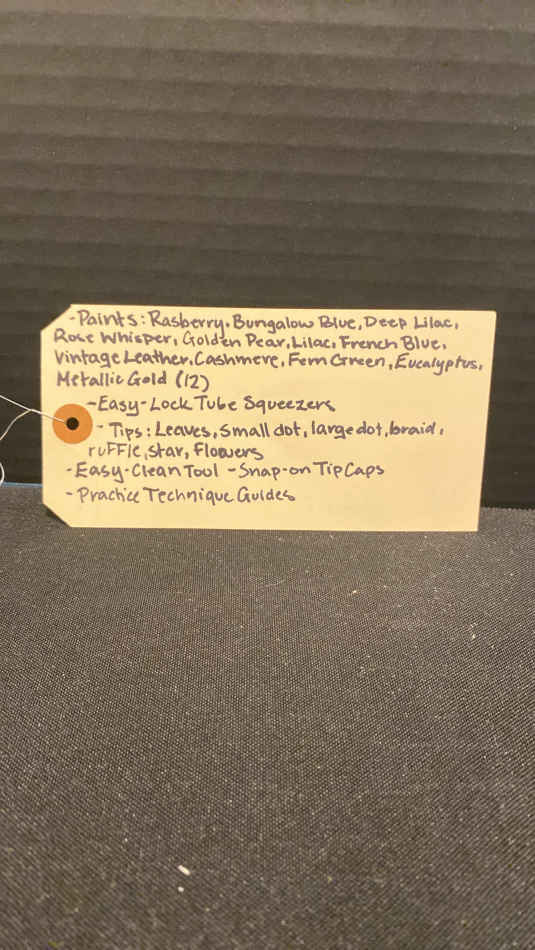 -Paints: Rasberry, Bungalow Blue, Deep Lilac,
Rose Whisper, Golden Pear, Lilac, French Blue,
Vintage Leather, Cashmere, Fern Green, Eucalyptus,
Metallic Gold (12)
-Easy-Lock Tube Squeezers
- Tips: Leaves, small dot, large dot, braid,
ruffle, star, flowers
-Easy-Clean Tool -Snap-on Tip Caps
- Practice Technique Guides